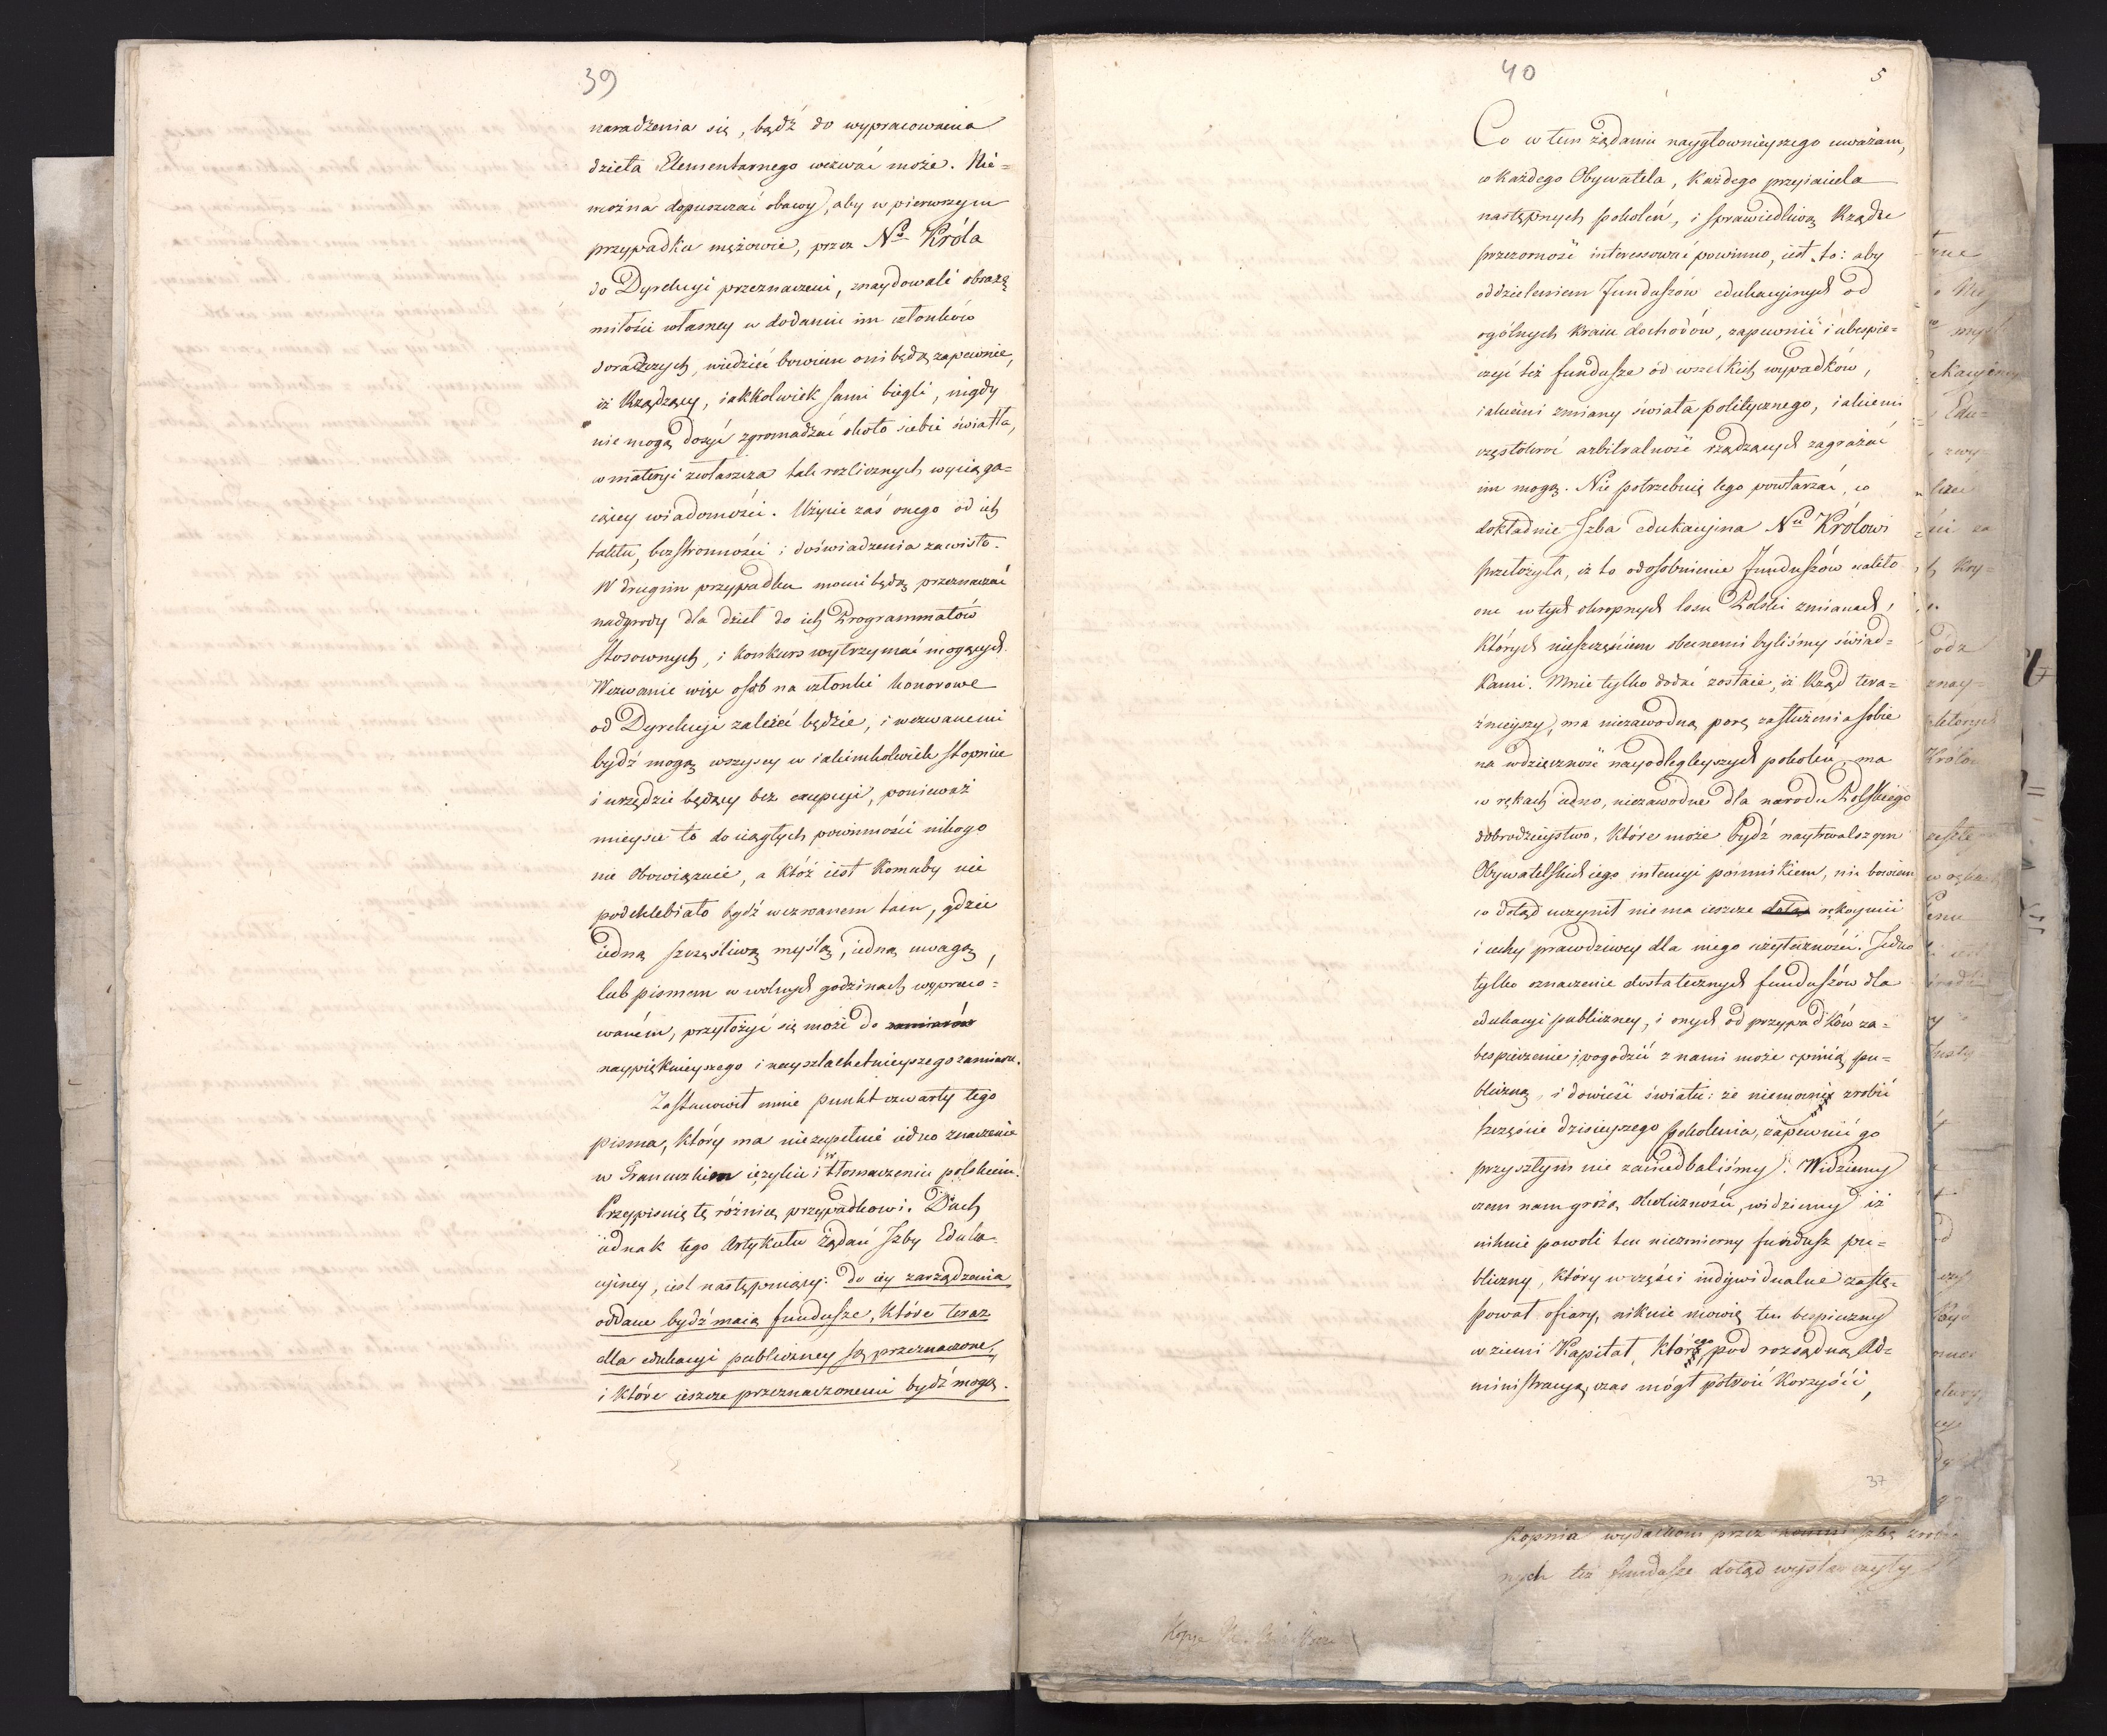 39
naradzenia się, bądź do wypracowania
dzieła Elementarnego wezwać może. Nie=
można dopuszczać obawy, aby w pierwszym
przypadku mężowie, przez Na Króla
do Dyrekcyi przeznaczeni, znaydowali obrazę
miłości własney w dodaniu im członków
doradczych, wiedzieć bowiem oni będą zapewnie,
iż Rządzący, iakkolwiek sami biegli, nigdy
nie mogą dosyć zgromadzać około siebie światła,
w materyi zwłaszcza tak rozlicznych wyciąga=
iącey wiadomości. Użycie zaś onego od ich
taktu, bezstronności i doświadzenia zawisło.
W drugim przypadku mocni będą przeznaczać
nadgrody dla dzieł do ich Programmatów
stosownych, i konkurs wytrzymać mogących.
Wezwanie więc osób na członki honorowe
od Dyrekcyi zależeć będzie, i wezwanemi
bydź mogą wszyscy w iakimkolwiek stopniu
i urzędzie będący bez excepcyi, ponieważ
mieysce to do ciągłych powinności nikogo
nie obowiązuie, a któż iest komuby nie
podchlebiało bydź wezwanem tam, gdzie
iedną szczęśliwą myślą, iedną uwagą,
lub pismem w wolnych godzinach wypraco=
waném, przyłożyć się może do zamiarów
naypięknieyszego i nayszlachetnieyszego zamiaru.
Zastanowił mnie punkt czwarty tego
pisma, który ma niezupełnie iedno znaczenie
w Francuzkiem ięzyku i w tłomaczeniu polskiem.
Przypisuię tę różnicę przypadkowi. Duch
iednak tego Artykułu żądań Izby Eduka=
cyiney, iest następuiący: do iey zarządzenia
oddane bydź maią fundusze, które teraz
dla edukacyi publiczney są przeznaczone,
i które ieszcze przeznaczonemi bydź mogą.
40
5
Co w tem żądaniu naygłownieyszego uważam,
co każdego Obywatela, każdego przyiaciela
następnych pokoleń, i sprawiedliwą Rządu
przezorność interessować powinno, iest to: aby
oddzieleniem Funduszów edukacyinych od
ogólnych kraiu dochodów, zapewnić i ubespie=
czyć też fundusze od wszelkich wypadków,
iakiemi zmiany świata politycznego, iakiemi
częstokroć arbitralność rządzących zagrażać
im mogą. Nie potrzebuię tego powtarzać, co
dokładnie Izba edukacyina Nu Królowi
przełożyła, iż to odosobnienie Funduszów ocaliło
one w tych okropnych losu Polski zmianach,
których nieszczęściem obecnemi byliśmy świad=
kami. Mnie tylko dodać zostaie, iż Rząd tera=
źnieyszy, ma niezawodną porę zasłużenia sobie
na wdzięczność nayodlegleyszych pokoleń, ma
w rękach iedno, niezawodne dla narodu Polskiego
dobrodzieystwo, które może bydź naytrwalszym
Obywatelskich iego intencyi pomnikiem, nic bowiem
co dotąd uczynił nie ma ieszcze dotąd rękoymii
i cechy prawdziwey dla niego użyteczności. Jedno
tylko oznaczenie dostatecznych funduszów dla
edukacyi publiczney, i onych od przypadków za=
bespieczenie, pogodzić z nami może opinią pu=
bliczną, i dowieść światu: że niemogąc zrobić
szczęście dzisieyszego pokolenia, zapewnić go
przyszłym nie zaniedbaliśmy. Widziemy
czem nam grożą okoliczności, widziemy iż
niknie powoli ten niezmierny fundusz pu=
bliczny, który w części indywidualne zastę=
pował ofiary, niknie mowię ten bespieczny
w ziemi Kapitał, którego pod rozsądną Ad=
ministracyą, czas mógł potroić korzyści,
37
stopnia wydatkom przez Izbę
nych też fundusze dotąd wystarczyły